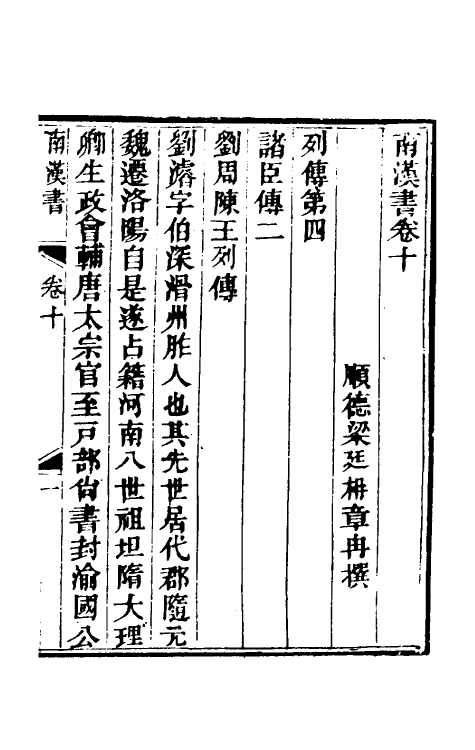 南漢書卷十
順德梁廷枏章冉撰
列傳第四
諸臣傳二
劉周陳王列傳
劉濬字伯深滑州胙人也其先世居代郡隨元
魏遷洛陽自是遂占籍河南八世祖坦隋大理
卿生政會輔唐太宗官至戸部尙書封渝國公
南漢書
卷十
一